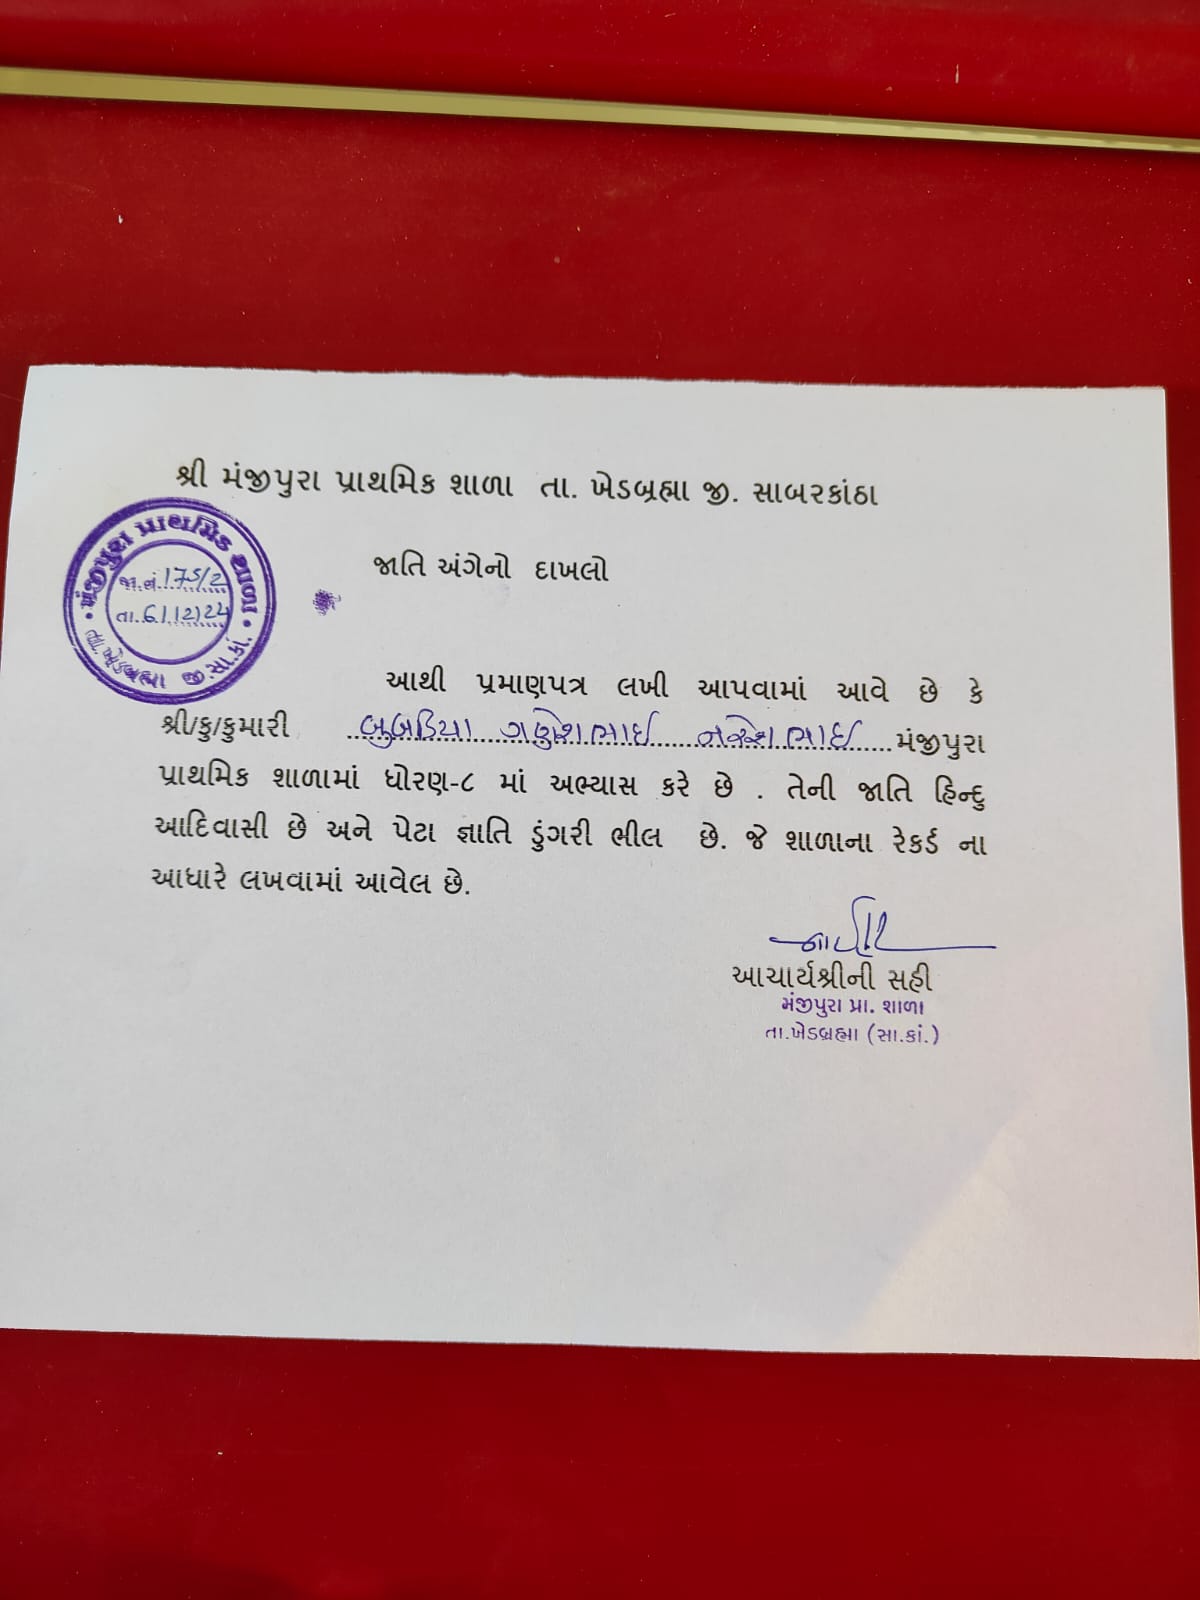 શ્રી મંજીપુરા પ્રાથમિક શાળા તા. ખેડબ્રહ્મા જી. સાબરકાંઠા
મંજીપુરા પ્રાથમિક શાળા
જા.નં. 175/2
તા. 6/12/24
તા.ખેડબ્રહ્મા જી.સા.કાં.
જાતિ અંગેનો દાખલો
આથી પ્રમાણપત્ર લખી આપવામાં આવે છે કે
શ્રી/કુ/કુમારી બુબડિયા ગણેશભાઈ નરેશભાઈ મંજીપુરા
પ્રાથમિક શાળામાં ધોરણ-૮ માં અભ્યાસ કરે છે . તેની જાતિ હિન્દુ
આદિવાસી છે અને પેટા જ્ઞાતિ ડુંગરી ભીલ છે. જે શાળાના રેકર્ડ ના
આધારે લખવામાં આવેલ છે.
આચાર્યશ્રીની સહી
મંજીપુરા પ્રા. શાળા
તા.ખેડબ્રહ્મા (સા.કાં.)